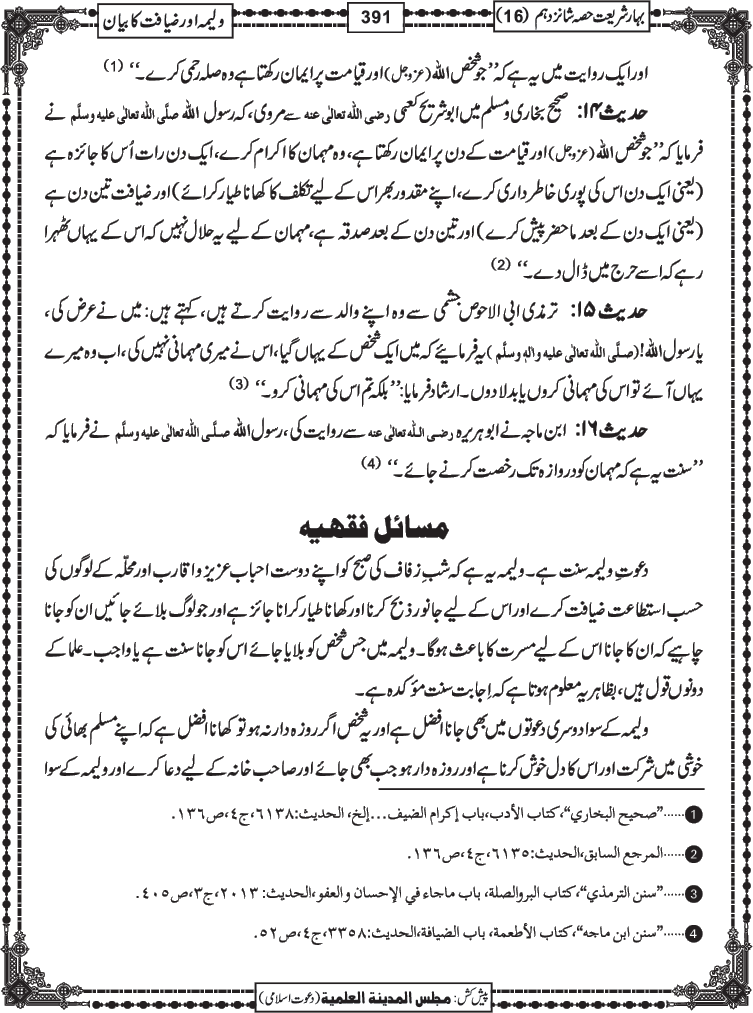 بہارِ شریعت حصہ شانزدہم (16)
391
ولیمہ اور ضیافت کا بیان
اور ایک روایت میں یہ ہے کہ ’’جو شخص اللہ (عزوجل) اور قیامت پر ایمان رکھتا ہے وہ صلہ رحمی کرے۔‘‘ (1)
حدیث ۱۴: صحیح بخاری و مسلم میں ابو شریح کعبی رضی اللہ تعالٰی عنہ سے مروی، کہ رسول اللہ صلَّی اللہ تعالٰی علیہ وسلَّم نے
فرمایا کہ ’’جو شخص اللہ (عزوجل) اور قیامت کے دن پر ایمان رکھتا ہے، وہ مہمان کا اکرام کرے، ایک دن رات اُس کا جائزہ ہے
(یعنی ایک دن اس کی پوری خاطر داری کرے، اپنے مقدور بھر اس کے لیے تکلف کا کھانا طیار کرائے) اور ضیافت تین دن ہے
(یعنی ایک دن کے بعد ما حضر پیش کرے) اور تین دن کے بعد صدقہ ہے، مہمان کے لیے یہ حلال نہیں کہ اس کے یہاں ٹھہرا
رہے کہ اسے حرج میں ڈال دے۔‘‘ (2)
حدیث ۱۵: ترمذی ابی الاحوص جشمی سے وہ اپنے والد سے روایت کرتے ہیں، کہتے ہیں: میں نے عرض کی،
یا رسول اللہ! (صلَّی اللہ تعالٰی علیہ واٰلہٖ وسلَّم) یہ فرمائیے کہ میں ایک شخص کے یہاں گیا، اس نے میری مہمانی نہیں کی، اب وہ میرے
یہاں آئے تو اس کی مہمانی کروں یا بدلا دوں۔ ارشاد فرمایا: ’’بلکہ تم اس کی مہمانی کرو۔‘‘ (3)
حدیث ۱۶: ابن ماجہ نے ابو ہریرہ رضی اللہ تعالٰی عنہ سے روایت کی، رسول اللہ صلَّی اللہ تعالٰی علیہ وسلَّم نے فرمایا کہ
’’سنت یہ ہے کہ مہمان کو دروازہ تک رخصت کرنے جائے۔‘‘ (4)
مسائل فقهیه
دعوتِ ولیمہ سنت ہے۔ ولیمہ یہ ہے کہ شبِ زفاف کی صبح کو اپنے دوست احباب عزیز و اقارب اور محلّہ کے لوگوں کی
حسب استطاعت ضیافت کرے اور اس کے لیے جانور ذبح کرنا اور کھانا طیار کرانا جائز ہے اور جو لوگ بلائے جائیں ان کو جانا
چاہیے کہ ان کا جانا اس کے لیے مسرت کا باعث ہوگا۔ ولیمہ میں جس شخص کو بلایا جائے اس کو جانا سنت ہے یا واجب۔ علما کے
دونوں قول ہیں، بظاہر یہ معلوم ہوتا ہے کہ اِجابت سنت مؤکدہ ہے۔
ولیمہ کے سوا دوسری دعوتوں میں بھی جانا افضل ہے اور یہ شخص اگر روزہ دار نہ ہو تو کھانا افضل ہے کہ اپنے مسلم بھائی کی
خوشی میں شرکت اور اس کا دل خوش کرنا ہے اور روزہ دار ہو جب بھی جائے اور صاحب خانہ کے لیے دعا کرے اور ولیمہ کے سوا
1 ......”صحيح البخاري“، كتاب الأدب، باب إكرام الضيف...إلخ، الحديث: ٦١٣٨، ج٤، ص١٣٦.
2 ......المرجع السابق، الحديث: ٦١٣٥، ج٤، ص١٣٦.
3 ......”سنن الترمذي“، كتاب البر والصلة، باب ماجاء في الإحسان والعفو، الحديث: ٢٠١٣، ج٣، ص٤٠٥.
4 ......”سنن ابن ماجه“، كتاب الأطعمة، باب الضيافة، الحديث: ٣٣٥٨، ج٤، ص٥٢.
پیش کش: مجلس المدينة العلمية (دعوت اسلامی)